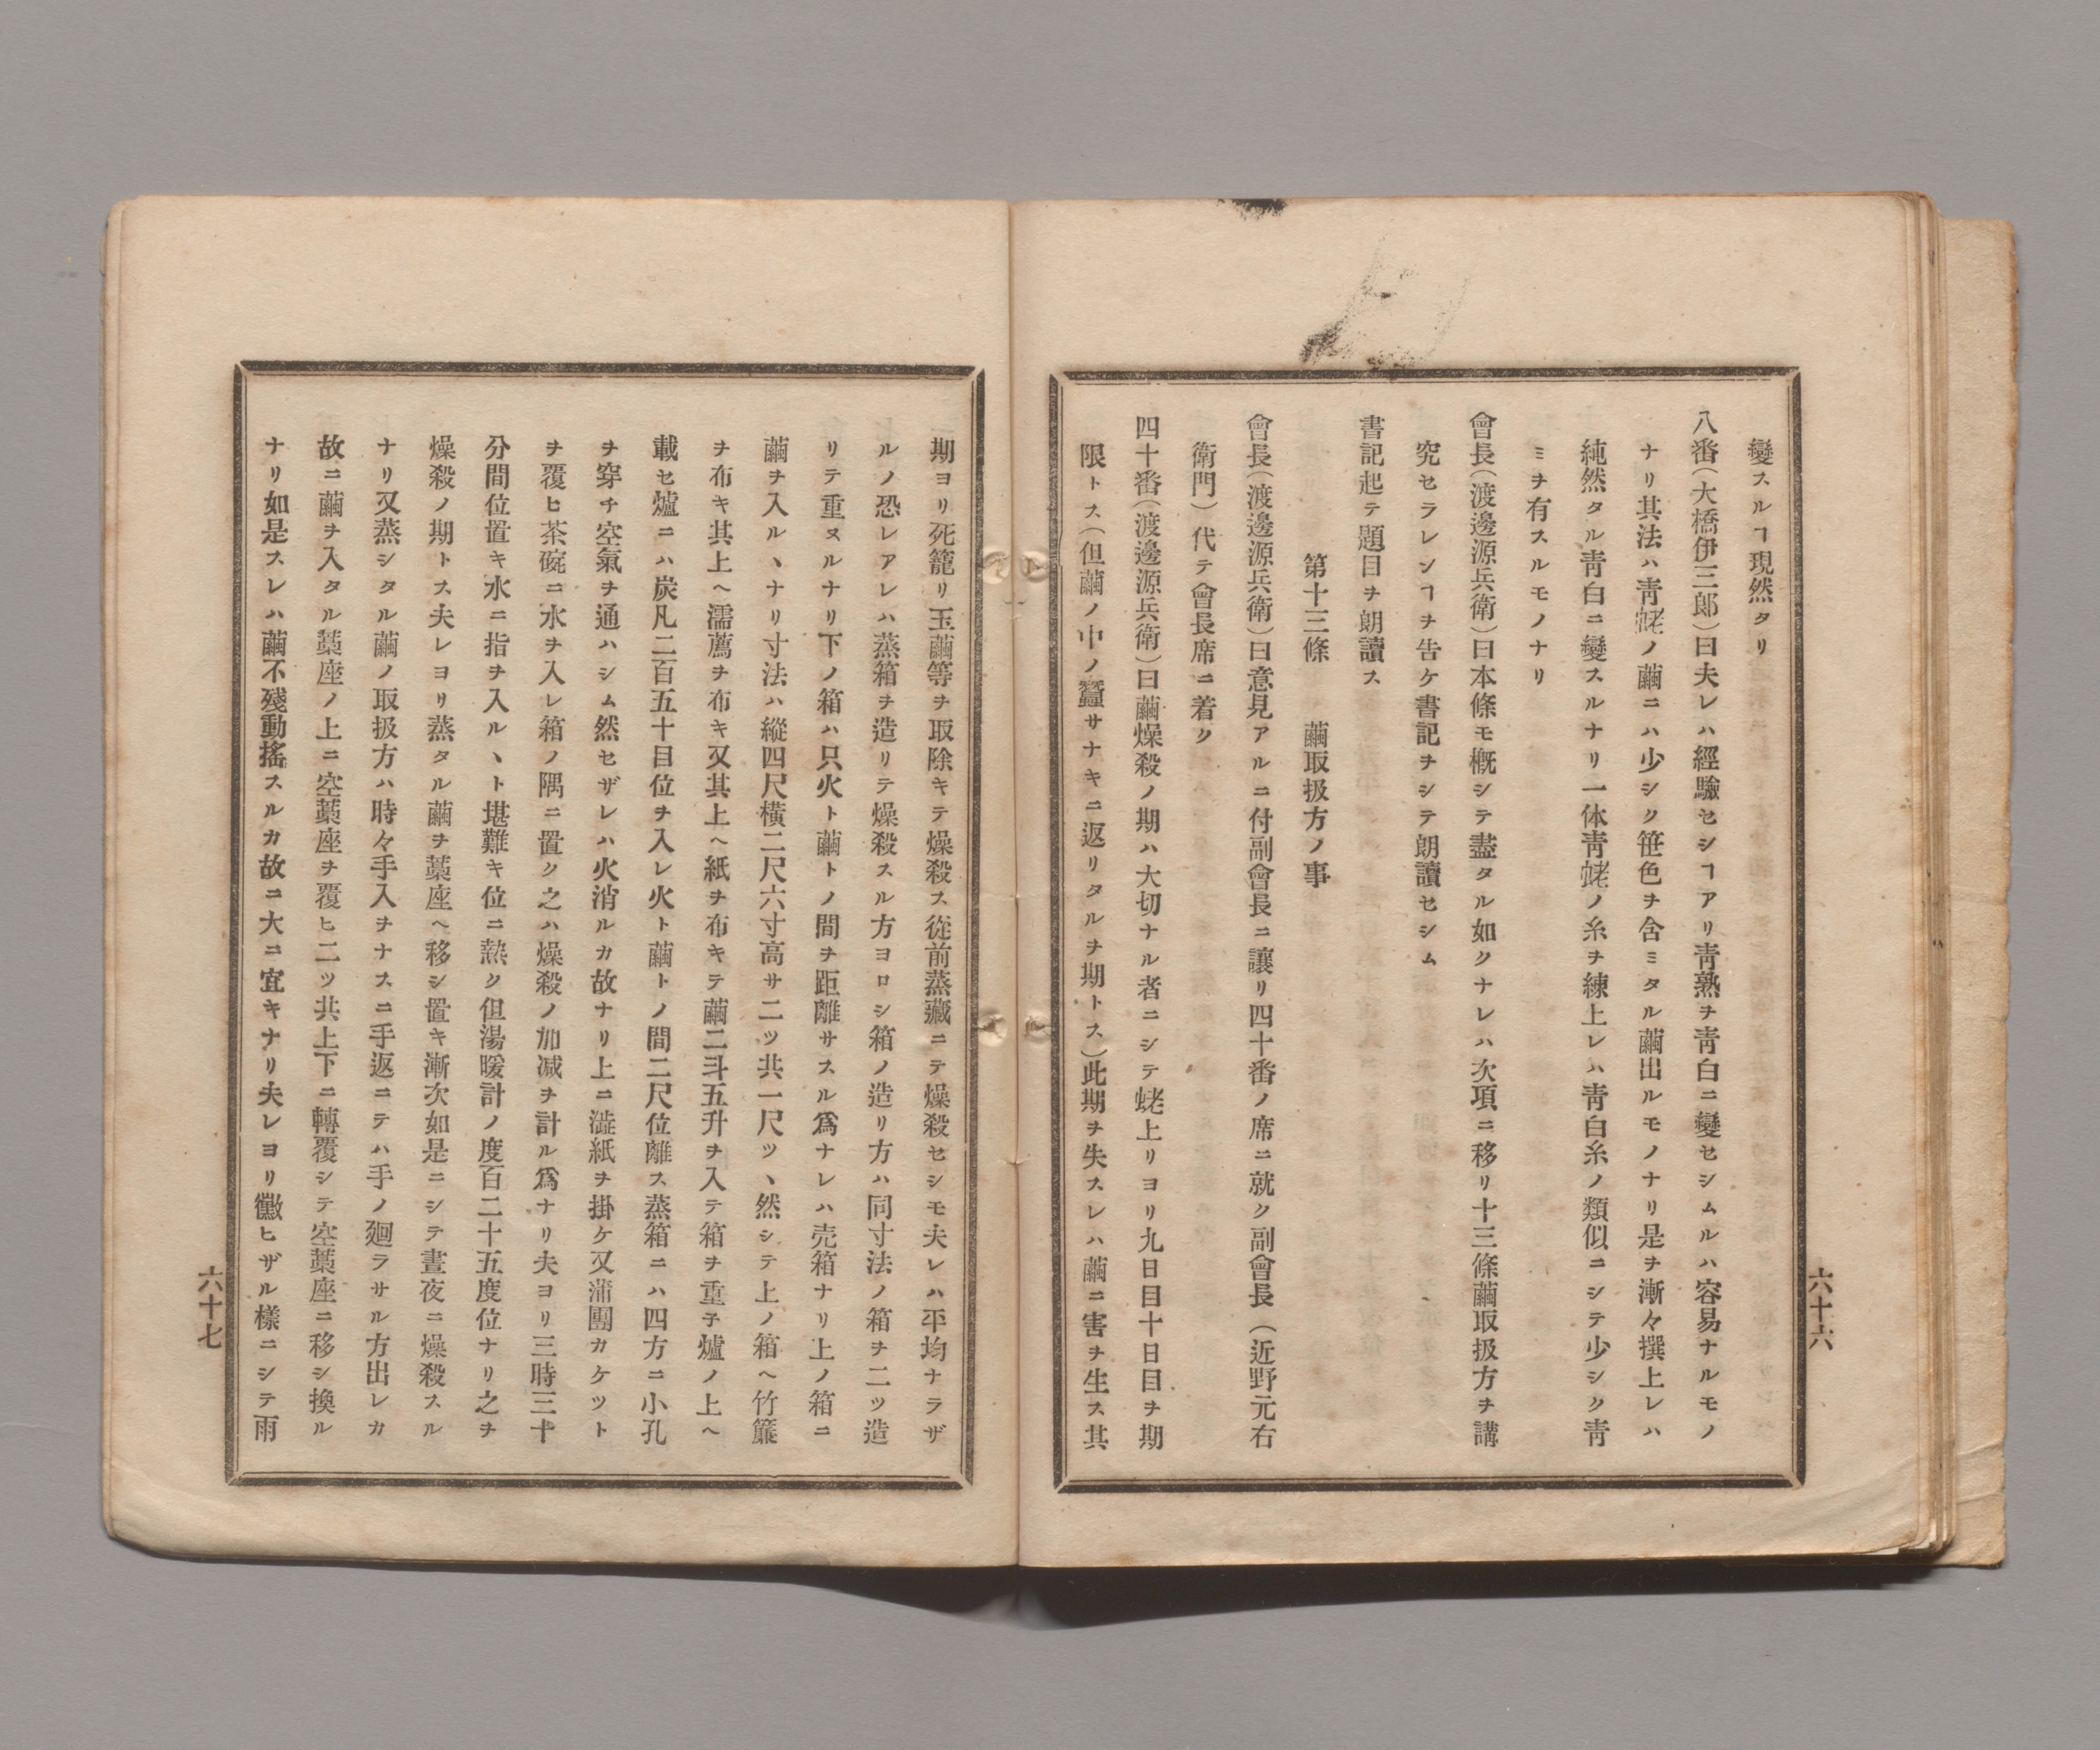 變スルヿ現然タリ
八番(大橋伊三郎)曰夫レハ經驗セシヿアリ靑熟ヲ靑白ニ變セシムルハ容易ナルモノ
ナリ其法ハ靑蛯ノ繭ニハ少シク笹色ヲ含ミタル繭出ルモノナリ是ヲ漸々撰上レハ
純然タル靑白ニ變スルナリ一体靑蛯ノ糸ヲ練上レハ靑白糸ノ類似ニシテ少シク靑
ミヲ有スルモノナリ
會長(渡邊源兵衛)曰本條モ槪シテ盡タル如クナレハ次項ニ移リ十三條繭取扱方ヲ講
究セラレンヿヲ告ケ書記ヲシテ朗讀セシム
書記起テ題目ヲ朗讀ス
第十三條 繭取扱方ノ事
會長(渡邊源兵衛)曰意見アルニ付副會長ニ讓リ四十番ノ席ニ就ク副會長(近野元右
衛門)代テ會長席ニ着ク
四十番(渡邊源兵衛)曰繭燥殺ノ期ハ大切ナル者ニシテ蛯上リヨリ九日目十日目ヲ期
限トス(但繭ノ中ノ蠶サナキニ返リタルヲ期トス)此期ヲ失スレハ繭ニ害ヲ生ス其
六十六
期ヨリ死籠リ玉繭等ヲ取除キテ燥殺ス從前蒸藏ニテ燥殺セシモ夫レハ平均ナラザ
ルノ恐レアレハ蒸箱ヲ造リテ燥殺スル方ヨロシ箱ノ造リ方ハ同寸法ノ箱ヲ二ツ造
リテ重ヌルナリ下ノ箱ハ只火ト繭トノ間ヲ距離サスル爲ナレハ売箱ナリ上ノ箱ニ
繭ヲ入ルヽナリ寸法ハ縱四尺橫二尺六寸高サ二ツ共一尺ツヽ然シテ上ノ箱ヘ竹簾
ヲ布キ其上ヘ濡薦ヲ布キ又其上ヘ紙ヲ布キテ繭二斗五升ヲ入テ箱ヲ重子爐ノ上ヘ
載セ爐ニハ炭凡二百五十目位ヲ入レ火ト繭トノ間二尺位離ス蒸箱ニハ四方ニ小孔
ヲ穿チ空氣ヲ通ハシム然セザレハ火消ルカ故ナリ上ニ澁紙ヲ掛ケ又蒲團カケツト
ヲ覆ヒ茶碗ニ水ヲ入レ箱ノ隅ニ置ク之ハ燥殺ノ加减ヲ計ル爲ナリ夫ヨリ三時三十
分間位置キ水ニ指ヲ入ルヽト堪難キ位ニ熱ク但湯暖計ノ度百二十五度位ナリ之ヲ
燥殺ノ期トス夫レヨリ蒸タル繭ヲ藁座ヘ移シ置キ漸次如是ニシテ晝夜ニ燥殺スル
ナリ又蒸シタル繭ノ取扱方ハ時々手入ヲナスニ手返ニテハ手ノ廻ラサル方出レカ
故ニ繭ヲ入タル藁座ノ上ニ空藁座ヲ覆ヒ二ツ共上下ニ轉覆シテ空藁座ニ移シ換ル
ナリ如是スレハ繭不殘動搖スルカ故ニ大ニ宜キナリ夫レヨリ黴ヒザル樣ニシテ雨
六十七